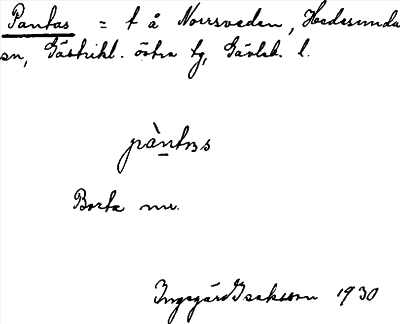 Pantas = t å Norrsveden, Hedesunda
sn, Gästrikl. östra tg, Gävleb. l.
pàntas
Borta nu.
Ingegärd Isaksson 1930